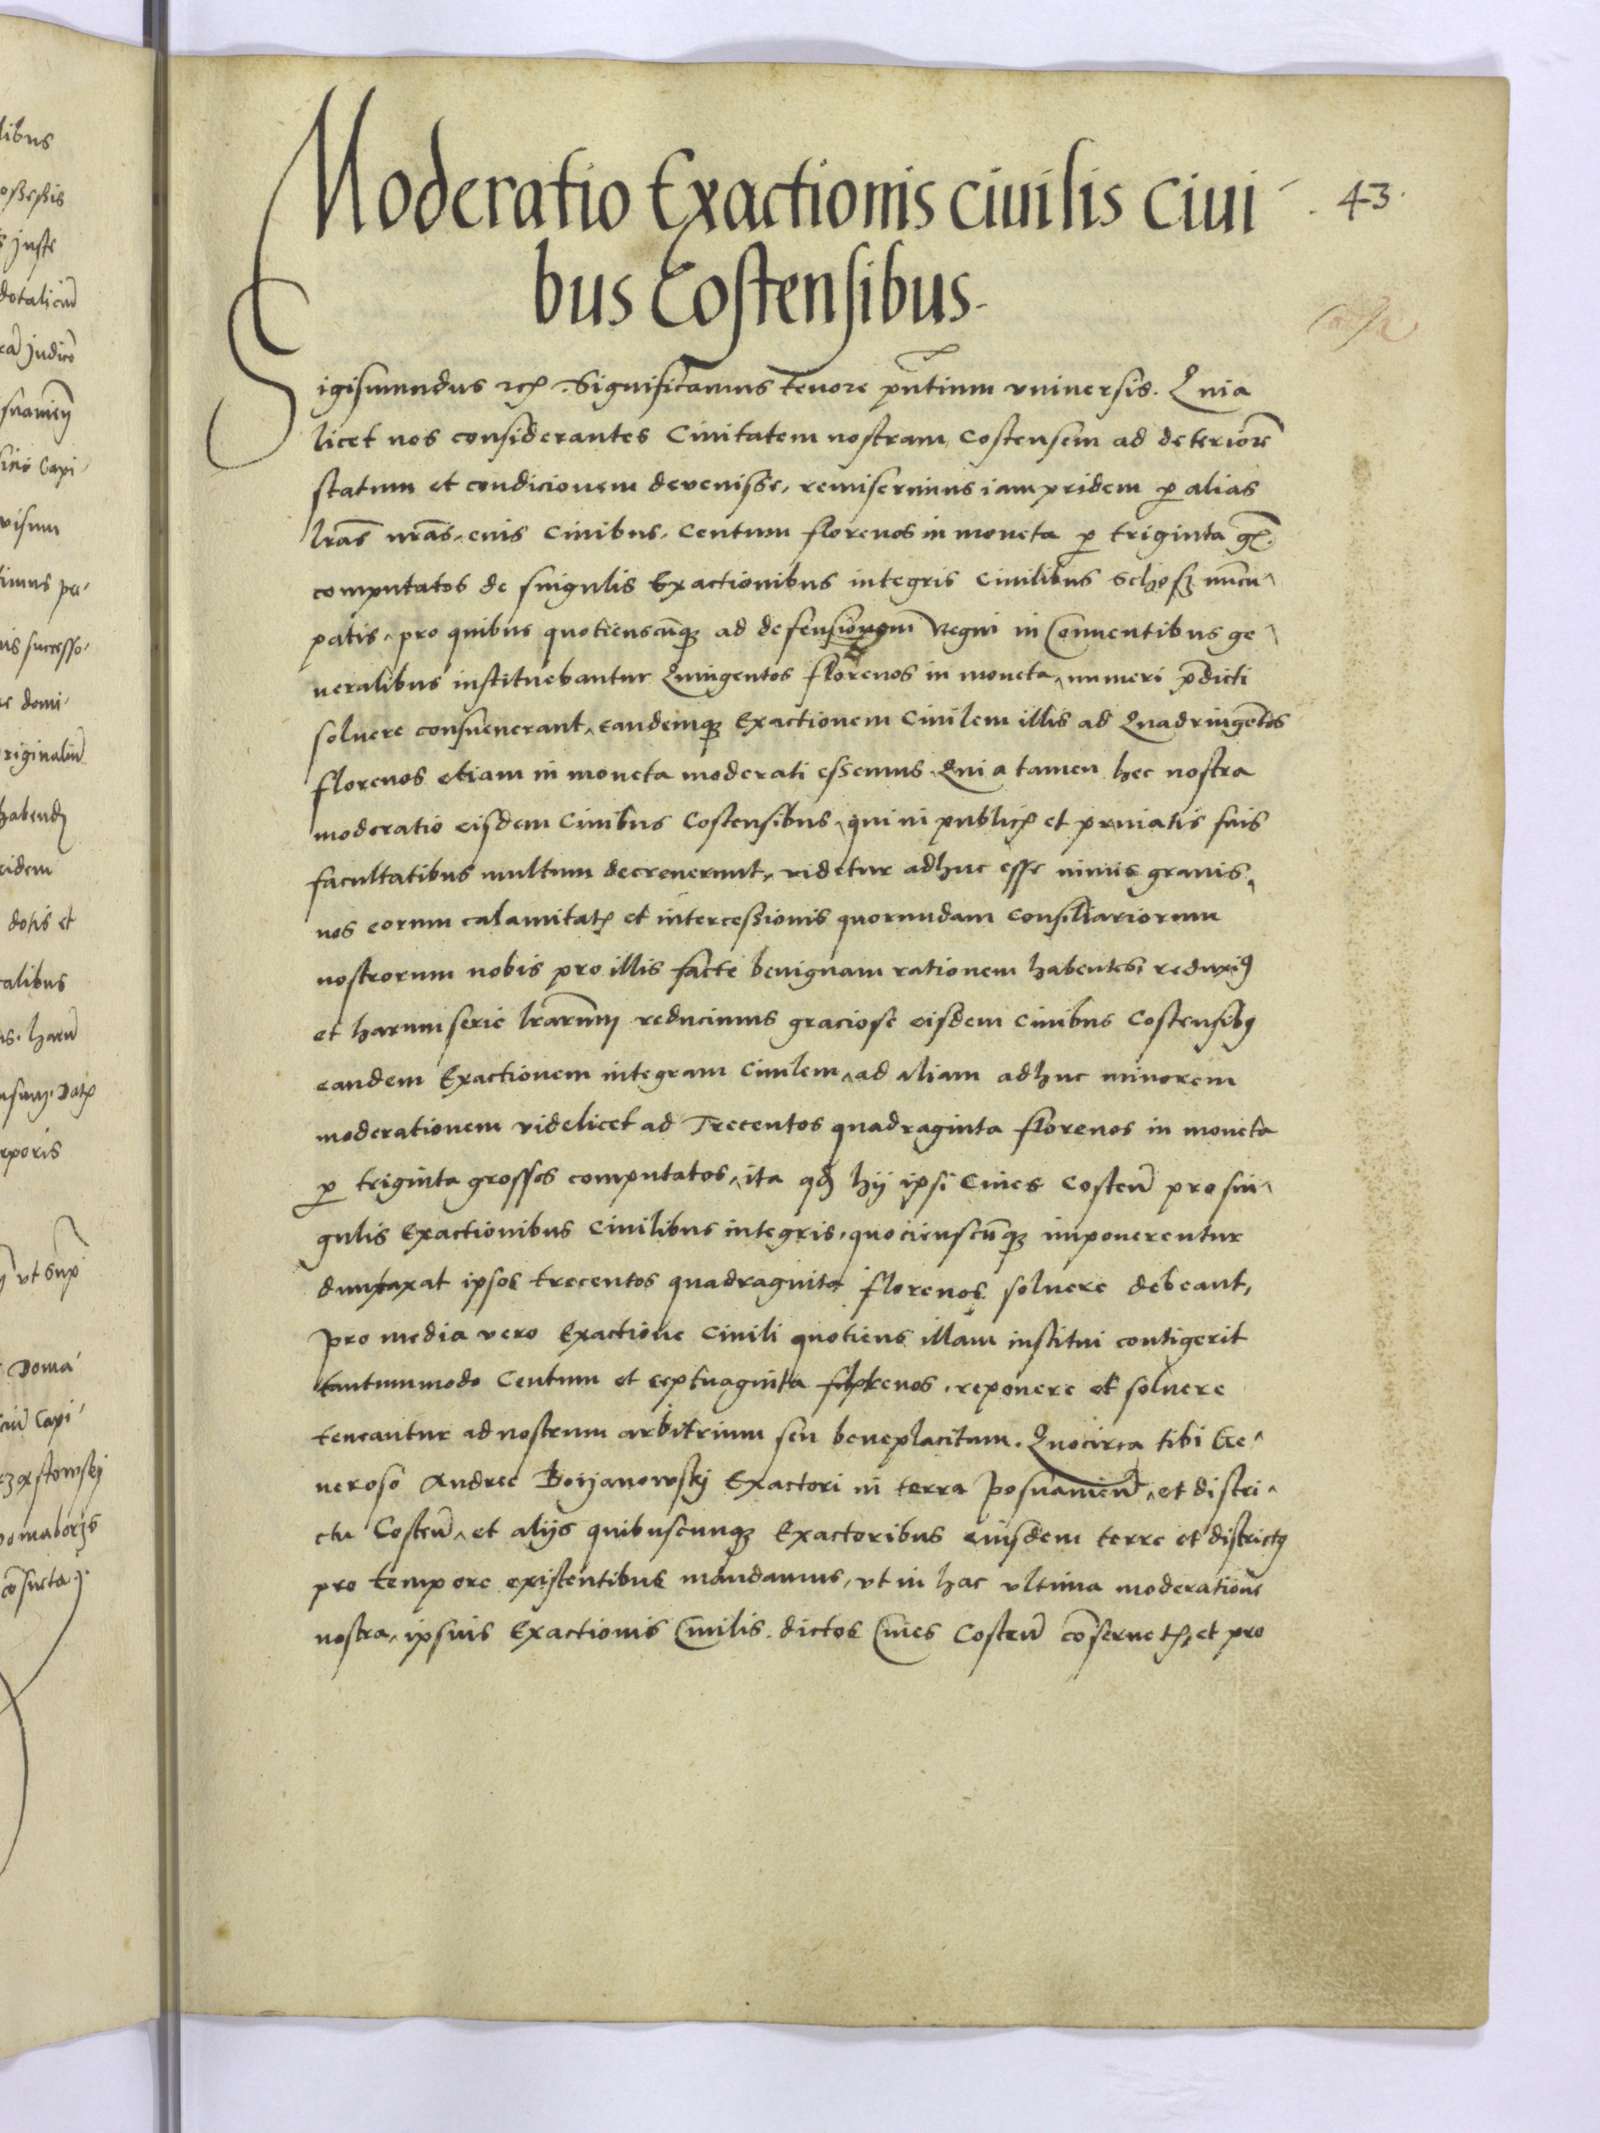 Moderatio Exactionis civilis Ciui
bus Costensibus.
43.
Sigismundus etc. Significamus tenore pñtium vniuersis. Quia
licet nos considerantes Ciuitatem nostram Costensem ad deteriorē
statum et condicionem devenisse, remiserimus iam pridem p alias
lrās nrās, eius Ciuibus, Centum florenos in moneta p triginta gr.
computatos de singulis Exactionibus integris Ciuilibus Schosz nuncu
patis, pro quibus quotienscūq3 ad defensionem Regni in Conuentibus ge
neralibus instituebantur Quingentos florenos in moneta, numeri p̄dicti
soluere consueuerant, eandemq3 Exactionem Ciuilem illis ad Quadringētos
florenos etiam in moneta moderati essemus. Quia tamen hec nostra
moderatio eisdem Ciuibus Costensibus, qui in publicis et priuatis suis
facultatibus multum decreuerunt, videtur adhuc esse nimis grauis,
nos eorum calamitatis et intercessionis quorundam Consiliariorum
nostrorum nobis pro illis facte benignam rationem habentes, reduxim9
et harum serie lrarum reducimus graciose eisdem Ciuibus Costensib9
eandem Exactionem integram Ciuilem, ad aliam adhuc minorem
moderationem videlicet ad Trecentos quadraginta florenos in moneta
p triginta grossos computatos, ita qd hij ipsi Ciues Costeñ pro sin
gulis Exactionibus Ciuilibus integris, quocienscūq3 imponerentur
duntaxat ipsos trecentos quadraginta florenos soluere debeant,
pro media vero Exactione Ciuili quotiens illam institui contigerit
tantummodo Centum et septuaginta florenos, reponere et soluere
teneantur ad nostrum arbitrium seu beneplacitum. Quocirca tibi Ge
neroso Andree Boijanowskj Exactori in terra Posnanieñ, et distri
ctu Costeñ, et alijs quibuscunq3 Exactoribus eiusdem terre et district9
pro tempore existentibus mandamus, vt in hac vltima moderatione
nostra, ipsius Exactionis Ciuilis, dictos Ciues Costeñ cōseruetis, et pro